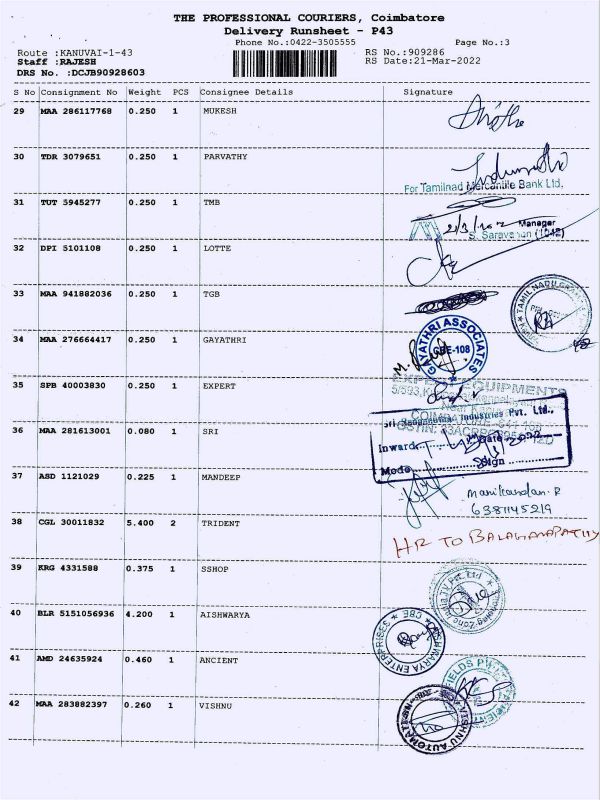 THE PROFESSIONAL COURIERS, Coimbatore
Delivery Runsheet - P43
Phone No.:0422-3505555 Page No.:3
Route :KANUVAI-1-43 RS No.:909286
Staff :RAJESH RS Date:21-Mar-2022
DRS No. :DCJB90928603
S No Consignment No Weight PCS Consignee Details Signature
29 MAA 286117768 0.250 1 MUKESH
30 TDR 3079651 0.250 1 PARVATHY
For Tamilnad Mercantile Bank Ltd.
31 TUT 5945277 0.250 1 TMB
Manager
S. Saravanan (1042)
32 DPI 5101108 0.250 1 LOTTE
33 MAA 941882036 0.250 1 TGB
TAMIL NADU
34 MAA 276664417 0.250 1 GAYATHRI
GAYATHRI ASSOCIATES
CBE-108
35 SPB 40003830 0.250 1 EXPERT
EQUIPMENTS
Industries Pvt. Ltd.,
36 MAA 281613001 0.080 1 SRI
COIMBATORE
Inward Date
Mode Sign
37 ASD 1121029 0.225 1 MANDEEP
Manikandan. R
6381145219
38 CGL 30011832 5.400 2 TRIDENT
HR TO BALAGANAPATHY
39 KRG 4331588 0.375 1 SSHOP
40 BLR 5151056936 4.200 1 AISHWARYA
AISWARYA ENTERPRISES * CBE *
41 AMD 24635924 0.460 1 ANCIENT
42 MAA 283882397 0.260 1 VISHNU
VISHNU AUTOMATION